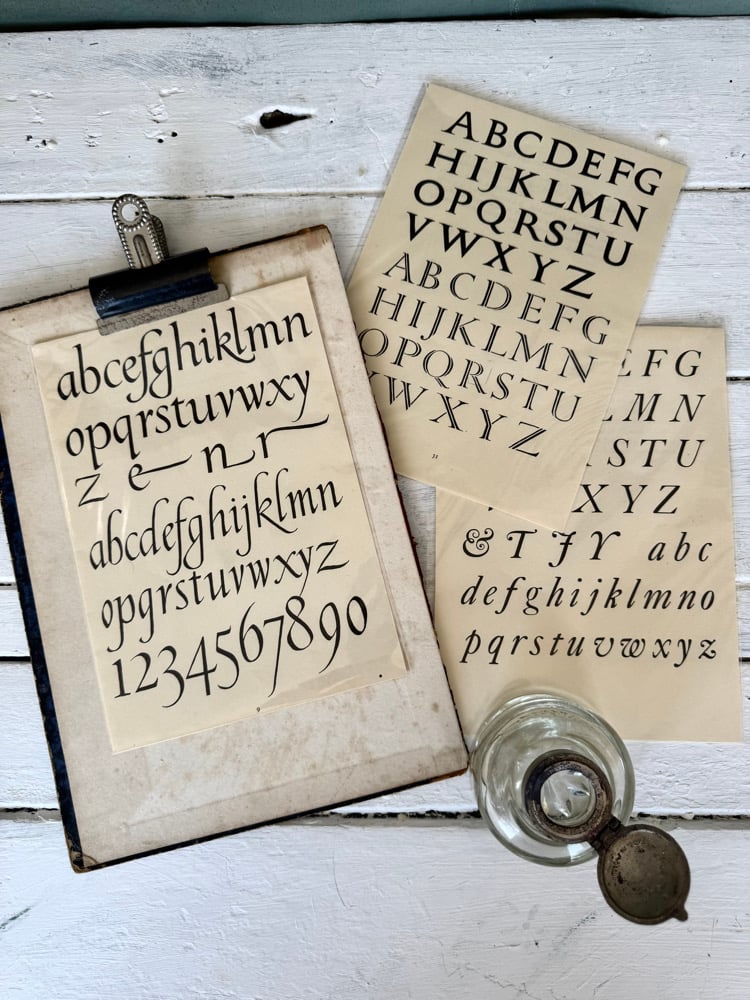 abcefghiklmn
opqrstuvwxy
z e n r
abcdefghijklmn
opqrstuvwxyz
1234567890
ABCDEFG
HIJKLMN
OPQRSTU
VWXYZ
ABCDEFG
HIJKLMN
OPQRSTU
VWXYZ
EFG
LMN
STU
XYZ
& T J Y abc
defghijklmno
pqrstuvwxyz